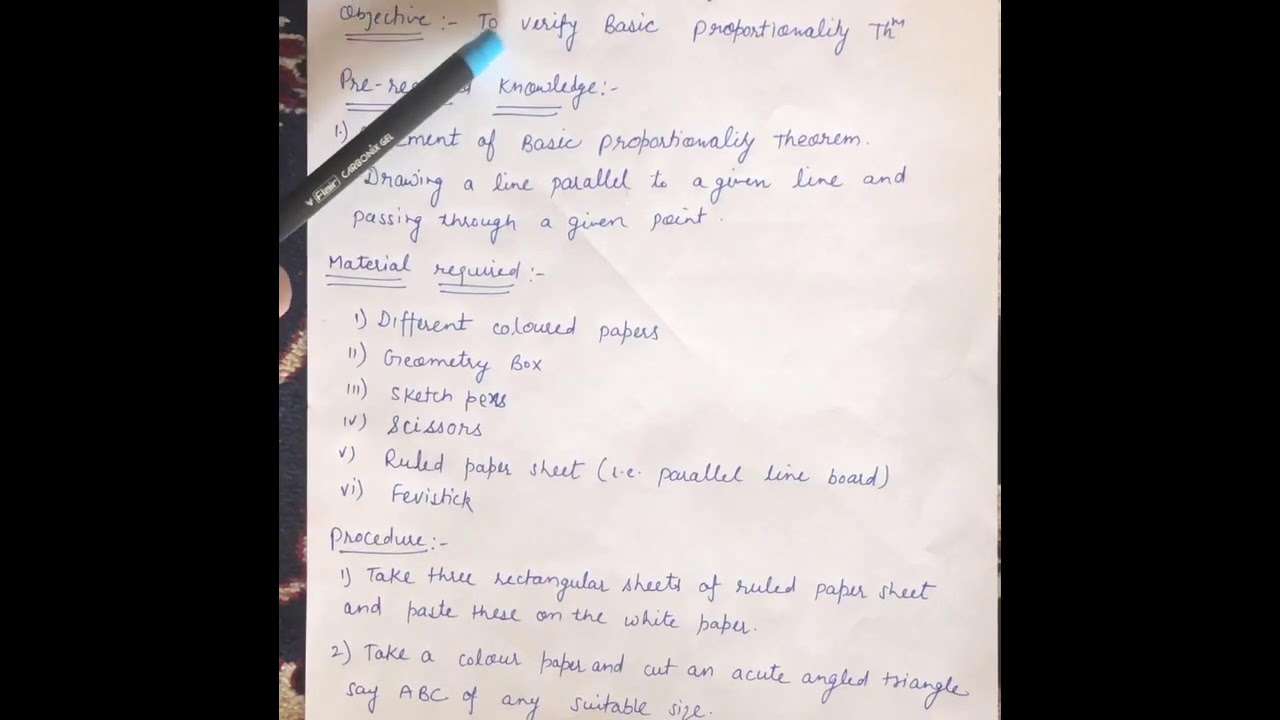 Objective :- To verify Basic Proportionality Thm
Knowledge:-
1.) of Basic Proportionality Theorem.
Drawing a line parallel to a given line and
passing through a given point.
Material required :-
i) Different coloured papers
ii) Geometry Box
iii) Sketch pens
iv) Scissors
v) Ruled paper sheet (i.e. parallel line board)
vi) Fevistick
Procedure:-
1) Take three rectangular sheets of ruled paper sheet
and paste these on the white paper.
2) Take a colour paper and cut an acute angled triangle
say ABC of any suitable size.
Flair CARBONIX GEL